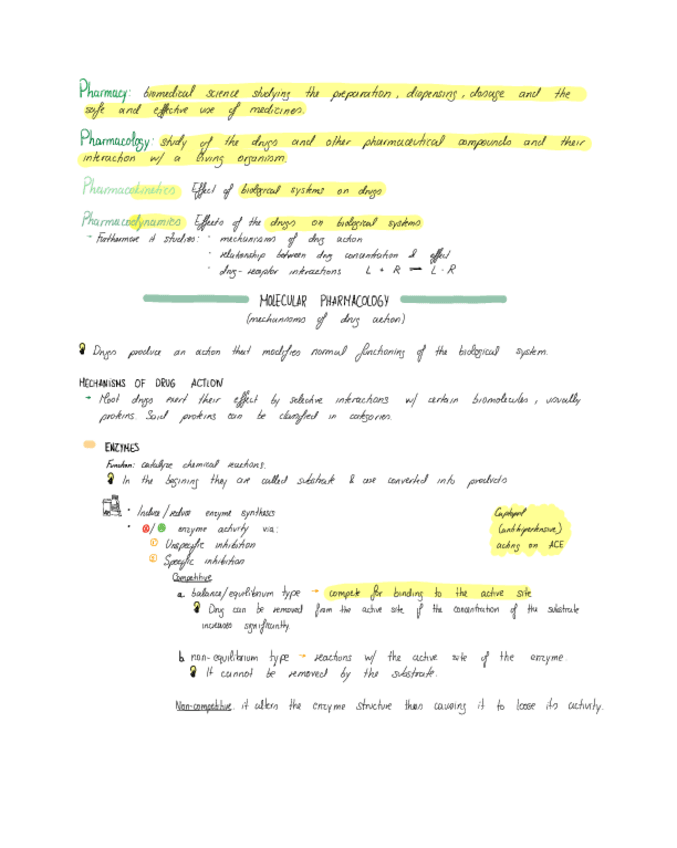 Pharmacy: biomedical science studying the preparation, dispensing, dosage and the
safe and effective use of medicines.
Pharmacology: study of the drugs and other pharmaceutical compounds and their
interaction w/ a living organism.
Pharmacokinetics Effect of biological systems on drugs
Pharmacodynamics Effects of the drugs on biological systems
→ Furthermore it studies: · mechanisms of drug action
· relationship between drug concentration & effect
· drug-receptor interactions L + R — L·R
MOLECULAR PHARMACOLOGY
(mechanisms of drug action)
Drugs produce an action that modifies normal functioning of the biological system.
MECHANISMS OF DRUG ACTION
→ Most drugs exert their effect by selective interactions w/ certain biomolecules, usually
proteins. Said proteins can be classified in categories.
ENZYMES
Function: catalyze chemical reactions.
In the begining they are called substrate & are converted into products
· Induce/reduce enzyme syntheses
· enzyme activity via:
① Unspecific inhibition
② Specific inhibition
Captopril
(antihipertensive)
acting on ACE
Competitive
a. balance/equilibrium type → compete for binding to the active site
Drug can be removed from the active site if the concentration of the substrate
increases significantly.
b. non-equilibrium type → reactions w/ the active site of the enzyme.
It cannot be removed by the substrate.
Non-competitive. it alters the enzyme structure then causing it to loose its activity.